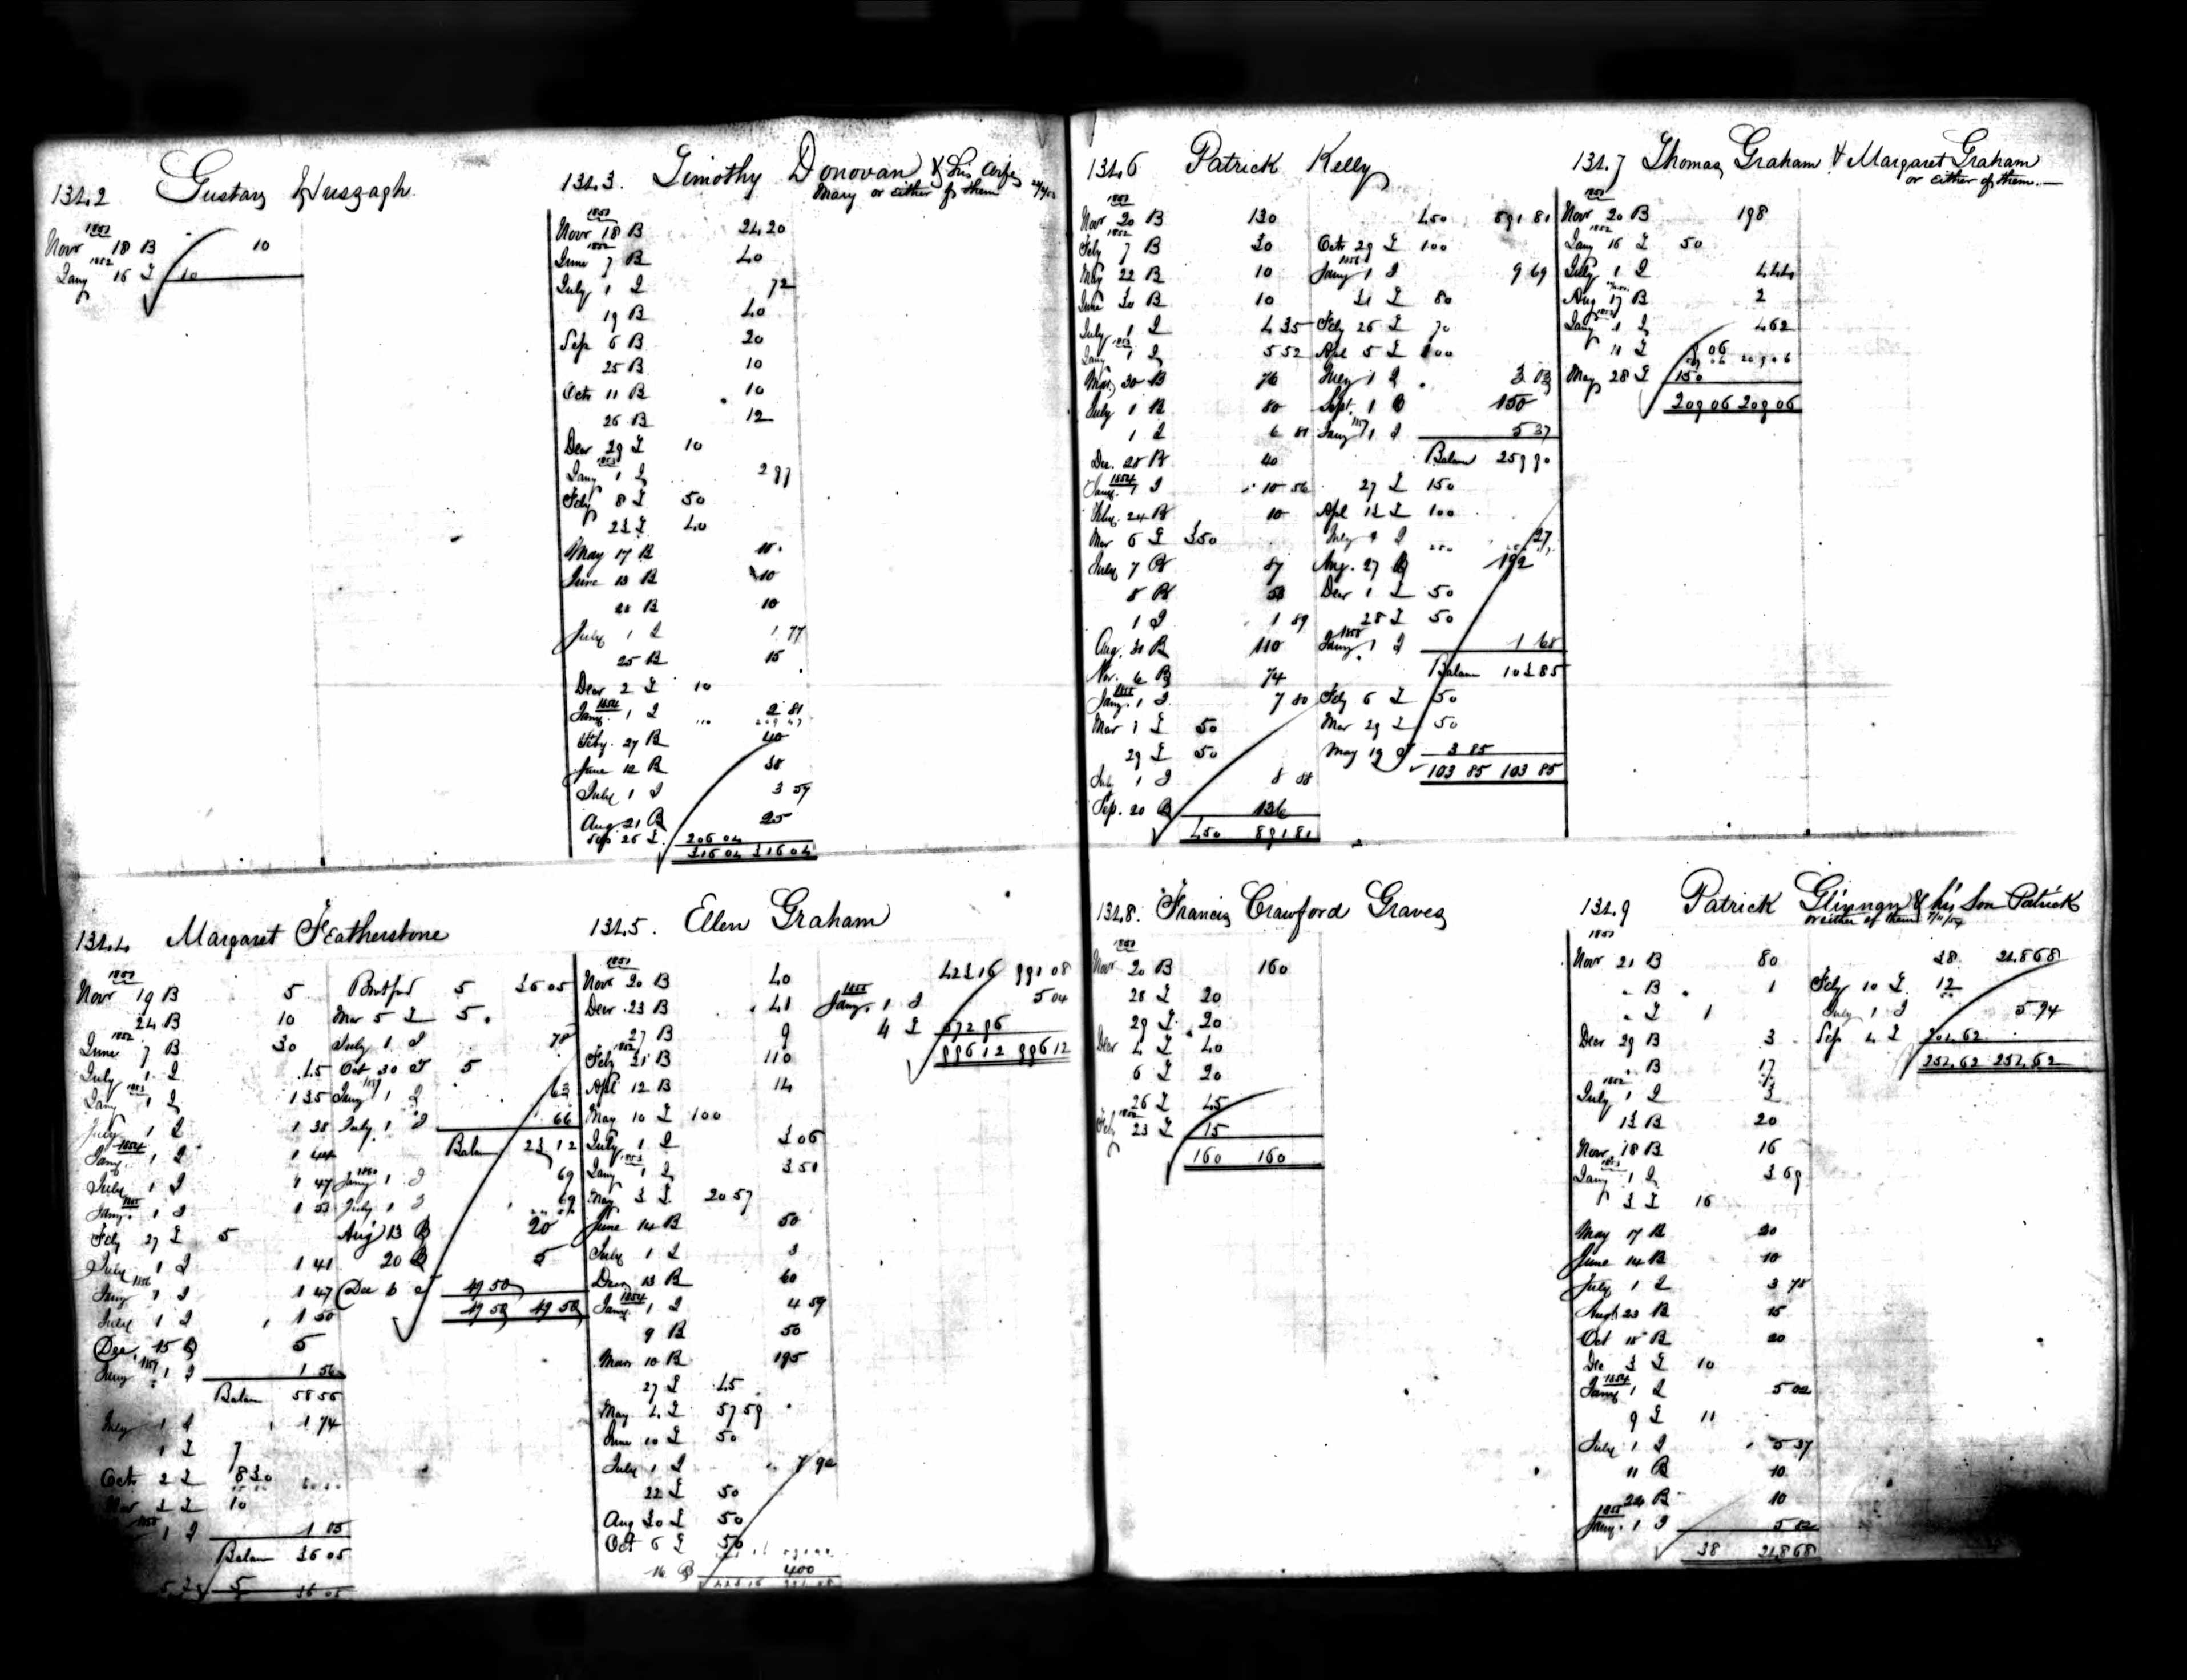 1342 Gustav Huszagh
1851
Novr 18 B 10
1852
Jany 16 I 10
1343. Timothy Donovan & his wife
Mary or either of them
1851
Novr 18 B 24 20
1852
June 7 B 40
July 1 I 72
19 B 40
Sep 6 B 20
25 B 10
Octr 11 B 10
26 B 12
Decr 29 I 10
1853
Jany 1 I 2 97
Feby 8 I 50
23 I 40
May 17 B 10
June 13 B 10
28 B 10
July 1 I 1 77
25 B 15
Decr 2 I 10
1854
Jany 1 I 2 81
Feby. 27 B 40
June 12 B 38
July 1 I 3 57
Aug 21 B 25
Sep 26 I 206 04
316 04 316 04
1344 Margaret Featherstone
1851
Novr 19 B 5
24 B 10
1852
June 7 B 30
July 1 I 45
1853
Jany 1 I 1 35
July 1 I 1 38
1854
Jany. 1 I 1 44
July 1 I 1 47
1855
Jany. 1 I 1 51
Feby 27 I 5
July 1 I 1 41
1856
Jany 1 I 1 47
July 1 I 1 50
Dec. 15 B 5
1857
Jany 1 I 1 56
Balan 58 56
July 1 I 1 74
1 I 7
Octr 2 I 8 30
Nov 3 I 10
1858
1 I 1 05
Balan 36 05
5 36 05
Brot fwd 5 36 05
Mar 5 I 5
July 1 I 78
Oct 30 I 5
1859
Jany 1 I 63
July 1 I 66
Balan 23 12
1860
Jany 1 I 69
July 1 I 69
Aug 13 B 20
20 B 5
Dec 6 I 49 50
49 50 49 50
1345. Ellen Graham
1851
Novr 20 B 40
Decr 23 B 41
27 B 9
1852
Feby 21 B 110
Apl 12 B 14
May 10 I 100
July 1 I 3 06
1853
Jany 1 I 3 51
May 3 I 20 57
June 14 B 50
July 1 I 3
Decr 13 B 60
1854
Jany. 1 I 4 59
9 B 50
Mar 10 B 195
27 I 45
May 4 I 57 59
June 10 I 50
July 1 I 7 92
22 I 50
Aug 30 I 50
Oct 6 I 50
16 B 400
423 16 991 08
423 16 991 08
1855
Jany. 1 I 5 04
4 I 572 96
996 12 996 12
1346 Patrick Kelly
1851
Novr 20 B 130
1852
Feby 7 B 30
May 22 B 10
June 30 B 10
July 1 I 4 35
1853
Jany 1 I 5 52
Mar 30 B 76
July 1 B 80
1 I 6 81
Dec. 28 B 40
1854
Jany. 1 I 10 56
Feby. 24 B 10
Mar 6 I 350
July 7 B 87
8 B 53
1 I 1 89
Aug. 31 B 110
Nov. 6 B 74
1855
Jany. 1 I 7 80
Mar 1 I 50
29 I 50
July 1 I 8 88
Sep. 20 B 136
450 891 81
450 891 81
Octr 29 I 100
1856
Jany 1 I 9 69
31 I 80
Feby 26 I 70
Apl 5 I 100
July 1 I 3 03
Sept. 1 B 150
1857
Jany 1 I 5 37
Balan 259 90
27 I 150
Apl 13 I 100
July 1 I 2 27
Aug. 27 B 192
Decr 1 I 50
28 I 50
1858
Jany 1 I 1 68
Balan 103 85
Feby 6 I 50
Mar 29 I 50
May 19 I 3 85
103 85 103 85
1347 Thomas Graham & Margaret Graham
or either of them.
1851
Novr 20 B 198
1852
Jany 16 I 50
July 1 I 4 44
Aug 17 B 2
1853
Jany 1 I 4 62
11 I 9 06
May 28 I 150
209 06 209 06
1348. Francis Crawford Graves
1851
Novr 20 B 160
28 I 20
29 I 20
Decr 4 I 40
6 I 20
26 I 45
1852
Feby 23 I 15
160 160
1349 Patrick Glynn & his Son Patrick
or either of them 7/11/54
1851
Novr 21 B 80
" B 1
" I 1
Decr 29 B 3
" B 17
1852
July 1 I 3
13 B 20
Novr 18 B 16
1853
Jany 1 I 3 69
3 I 16
May 17 B 30
June 14 B 10
July 1 I 3 78
Augt 23 B 15
Oct 18 B 20
Dec 3 I 10
1854
Jany 1 I 5 02
9 I 11
July 1 I 5 37
11 B 10
24 B 10
1855
Jany. 1 I 5 82
38 248 68
38 248 68
Feby 10 I 12
July 1 I 5 94
Sep 4 I 204 62
254 62 254 62